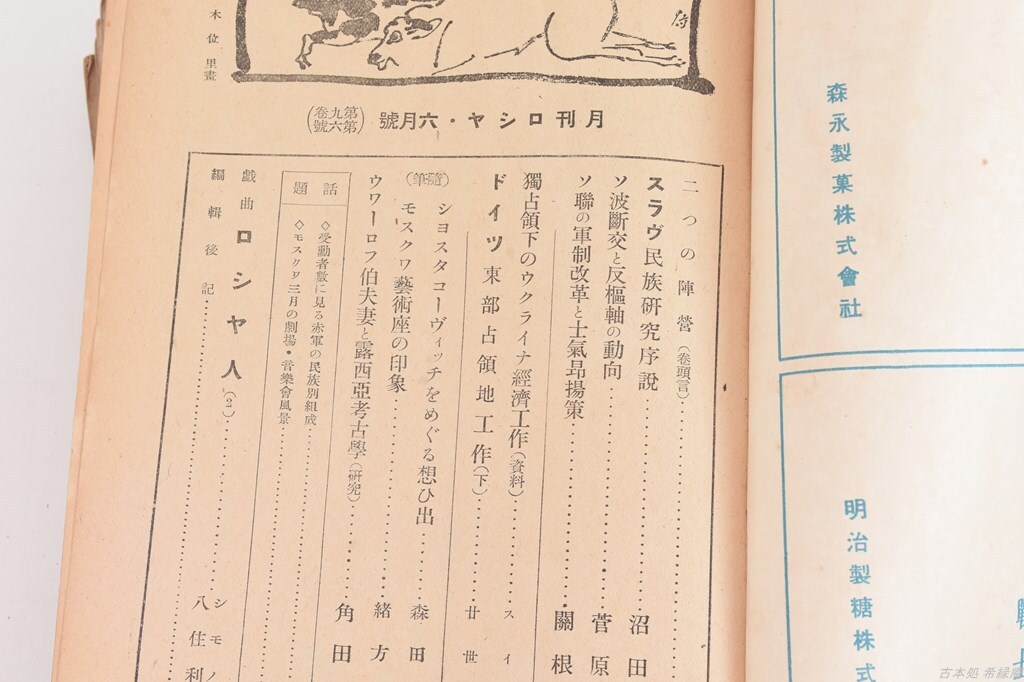 森永製菓株式會社
明治製糖株式
木位里畫
月刊ロシヤ・六月號
(第九卷第六號)
二つの陣營(卷頭言)
スラヴ民族研究序說 沼田
ソ波斷交と反樞軸の動向 菅原
ソ聯の軍制改革と士氣昂揚策 關根
獨占領下のウクライナ經濟工作(資料) スイ
ドイツ東部占領地工作(下) 廿世
(隨筆)
シヨスタコーヴィッチをめぐる想ひ出 森田
モスクワ藝術座の印象 緒方
ウワーロフ伯夫妻と露西亞考古學(硏究) 角田
話題
◇受動者數に見る赤軍の民族別組成
◇モスクワ三月の劇場・音樂會風景
戲曲ロシヤ人(2) シモノ
八住利
編輯後記
古本処 希縁庵